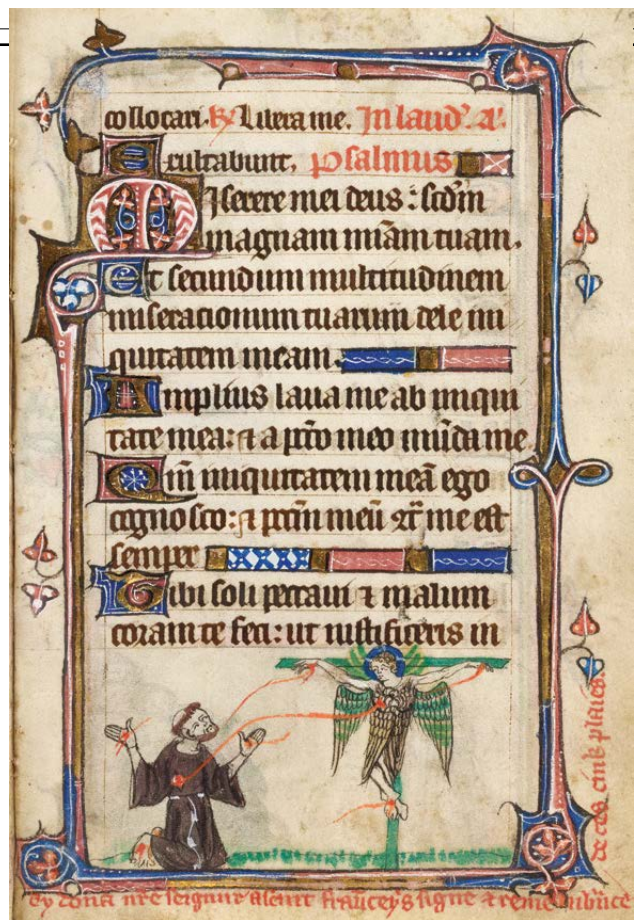 collocari. R Libera me. In laud'. a'.
Exultabunt. Psalmus
Miserere mei deus : scdm
magnam miam tuam.
Et secundum multitudinem
miseracionum tuarum dele ini
quitatem meam.
Amplius laua me ab iniqui
tate mea: ⁊ a pcto meo mūda me.
Qm̄ iniquitatem meā ego
cognosco: ⁊ pctm̄ meū 9tͣ me est
semper
Tibi soli peccaui ⁊ malum
coram te feci: ut iustificeris in
cy dona nr̄e seignur a seint franceys signe ⁊ remembrāce
de ces cink plaies.